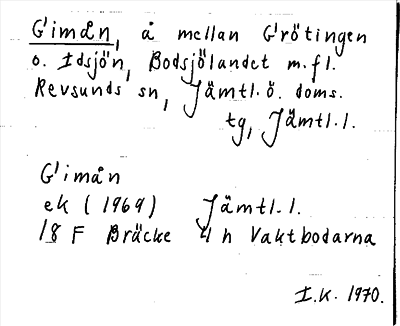 G'imån, å mellan Grötingen
o. Idsjön, Bodsjölandet m.fl.
Revsunds sn, Jämtl. ö. doms.
tg, Jämtl. l.
G'imån
ek (1969) Jämtl. l.
18 F Bräcke 4 h Vaktbodarna
I.K. 1970.